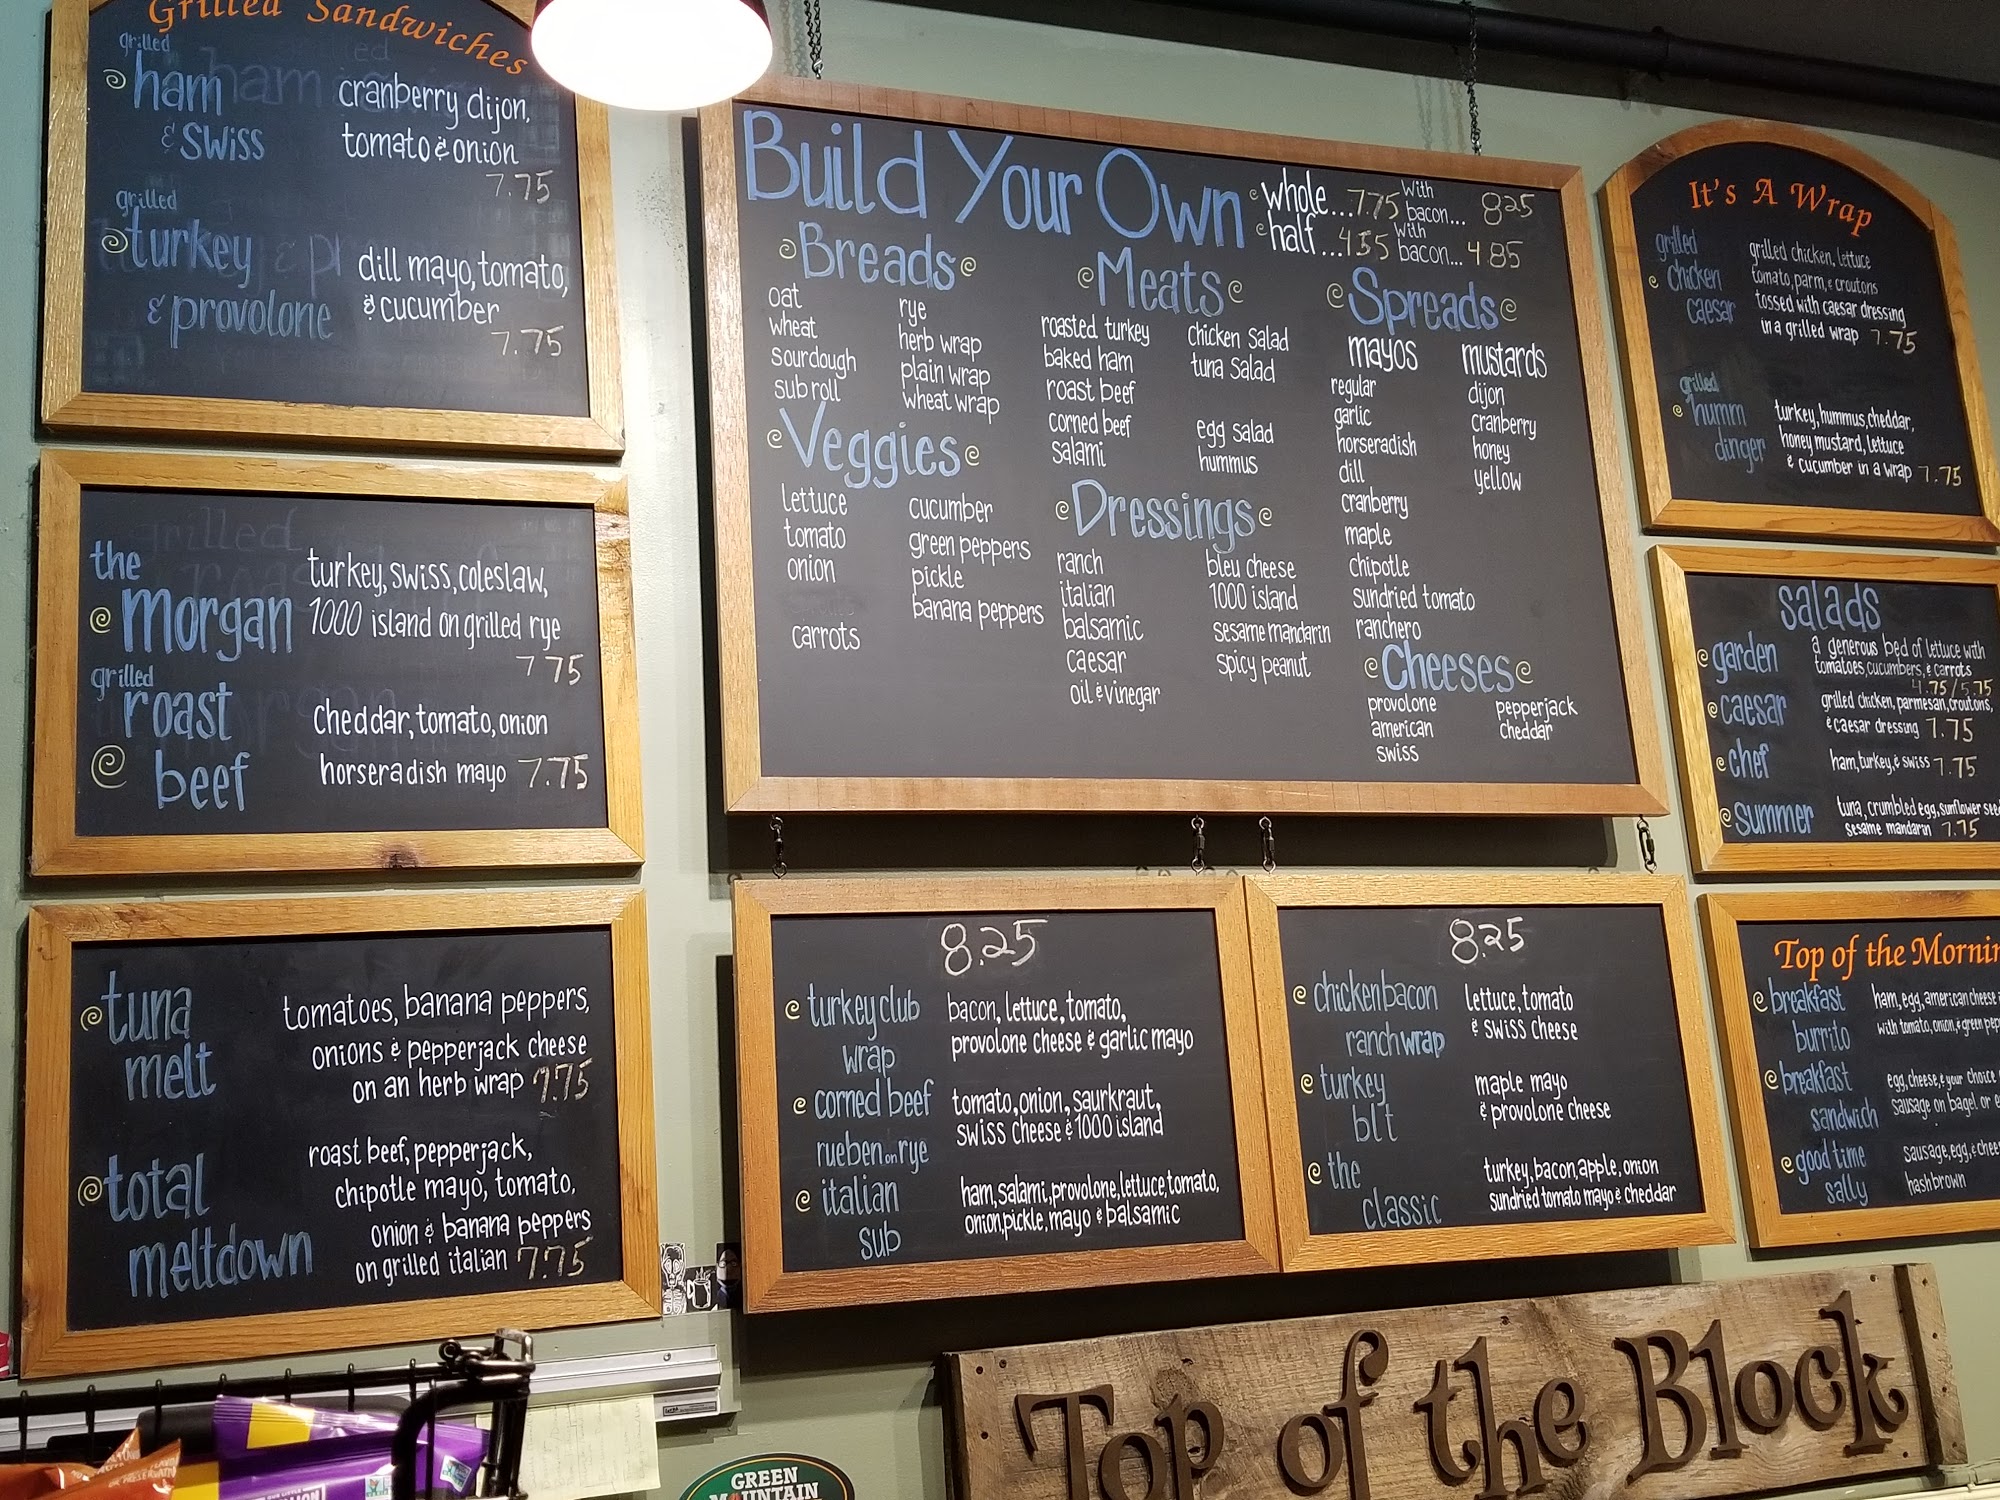 Grilled Sandwiches
grilled
ham
& Swiss
cranberry dijon,
tomato & onion
7.75
grilled
turkey
& provolone
dill mayo, tomato,
& cucumber
7.75
the
morgan
turkey, swiss, coleslaw,
1000 island on grilled rye
7.75
grilled
roast
beef
cheddar, tomato, onion
horseradish mayo 7.75
tuna
melt
tomatoes, banana peppers,
onions & pepperjack cheese
on an herb wrap 7.75
total
meltdown
roast beef, pepperjack,
chipotle mayo, tomato,
onion & banana peppers
on grilled italian 7.75
Build Your Own
whole...7.75 with bacon... 8.25
half...4.55 with bacon...4.85
Breads
oat
wheat
sourdough
sub roll
rye
herb wrap
plain wrap
wheat wrap
Veggies
lettuce
tomato
onion
carrots
cucumber
green peppers
pickle
banana peppers
Meats
roasted turkey
baked ham
roast beef
corned beef
salami
chicken salad
tuna salad
egg salad
hummus
Dressings
ranch
italian
balsamic
caesar
oil & vinegar
bleu cheese
1000 island
sesame mandarin
spicy peanut
Spreads
mayos
regular
garlic
horseradish
dill
cranberry
maple
chipotle
sundried tomato
ranchero
mustards
dijon
cranberry
honey
yellow
Cheeses
provolone
american
swiss
pepperjack
cheddar
8.25
turkey club
wrap
bacon, lettuce, tomato,
provolone cheese & garlic mayo
corned beef
rueben on rye
tomato, onion, saurkraut,
swiss cheese & 1000 island
italian
sub
ham, salami, provolone, lettuce, tomato,
onion, pickle, mayo & balsamic
8.25
chicken bacon
ranch wrap
lettuce, tomato
& swiss cheese
turkey
blt
maple mayo
& provolone cheese
the
classic
turkey, bacon, apple, onion
sundried tomato mayo & cheddar
It's A Wrap
grilled
chicken
caesar
grilled chicken, lettuce
tomato, parm, & croutons
tossed with caesar dressing
in a grilled wrap 7.75
grilled
humm
dinger
turkey, hummus, cheddar,
honey mustard, lettuce
& cucumber in a wrap 7.75
salads
garden
a generous bed of lettuce with
tomatoes, cucumbers, & carrots
4.75/5.75
caesar
grilled chicken, parmesan, croutons,
& caesar dressing 7.75
chef
ham, turkey, & swiss 7.75
summer
tuna, crumbled egg, sunflower see
sesame mandarin 7.75
Top of the Mornin
breakfast
burrito
ham, egg, american cheese
with tomato, onion, & green pep
breakfast
sandwich
egg, cheese, & your choice
sausage on bagel or e
good time
sally
sausage, egg, & chee
hashbrown
Top of the Block
GREEN
MOUNTAIN